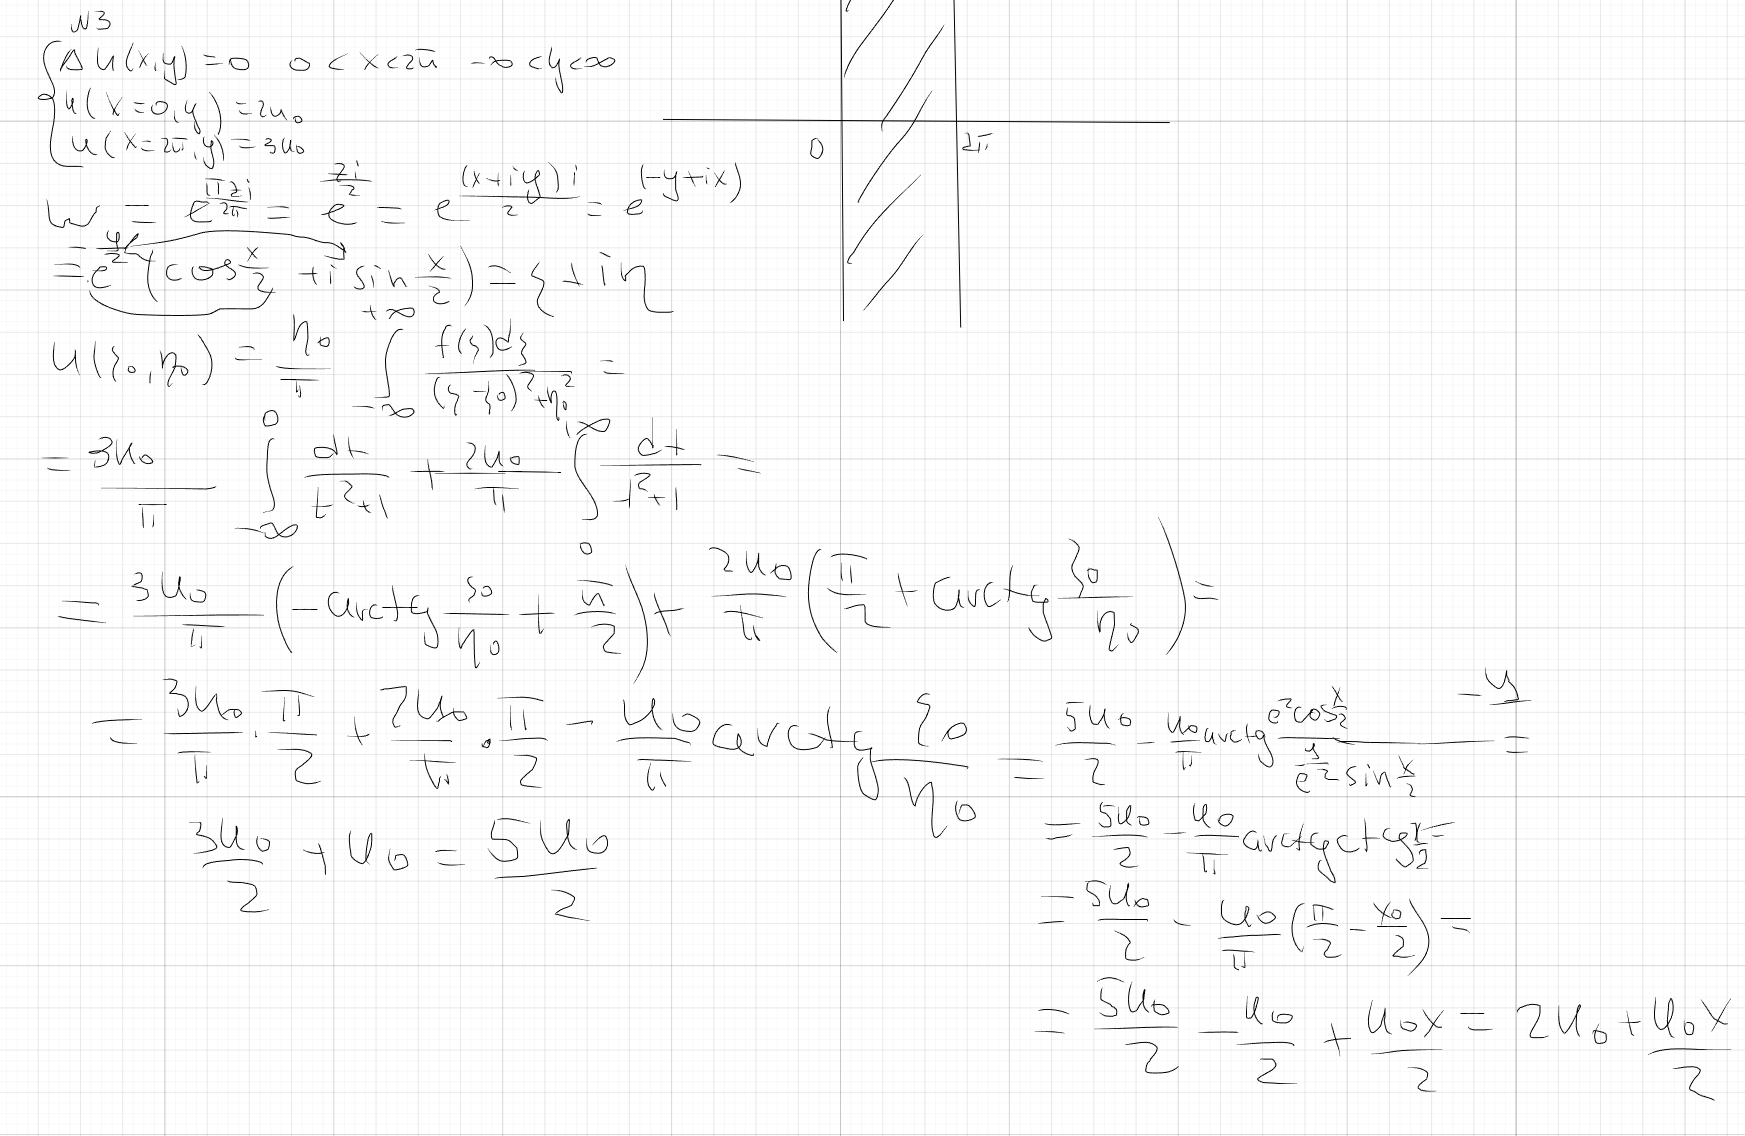 N3
Δu(x,y)=0  0<x<2π  -∞<y<∞
u(x=0,y)=2u₀
u(x=2π,y)=3u₀
0  2π
w = e^(πzi/2π) = e^(zi/2) = e^((x+iy)i/2) = e^(-y+ix)
= e^(y/2)(cos x/2 + i sin x/2) = ξ+iη
u(ξ₀,η₀) = η₀/π ∫_{-∞}^{+∞} f(ξ)dξ/((ξ-ξ₀)²+η₀²) =
= 3u₀/π ∫_{-∞}^{0} dt/(t²+1) + 2u₀/π ∫_{0}^{+∞} dt/(t²+1) =
= 3u₀/π (-arctg ξ₀/η₀ + π/2) + 2u₀/π (π/2 + arctg ξ₀/η₀) =
= 3u₀/π · π/2 + 2u₀/π · π/2 - u₀/π arctg ξ₀/η₀ = 5u₀/2 - u₀/π arctg (e² cos x/2)/(e^(y/2) sin x/2) =
-y
3u₀/2 + u₀ = 5u₀/2
= 5u₀/2 - u₀/π arctg ctg x/2 =
= 5u₀/2 - u₀/π (π/2 - x₀/2) =
= 5u₀/2 - u₀/2 + u₀x/2 = 2u₀ + u₀x/2